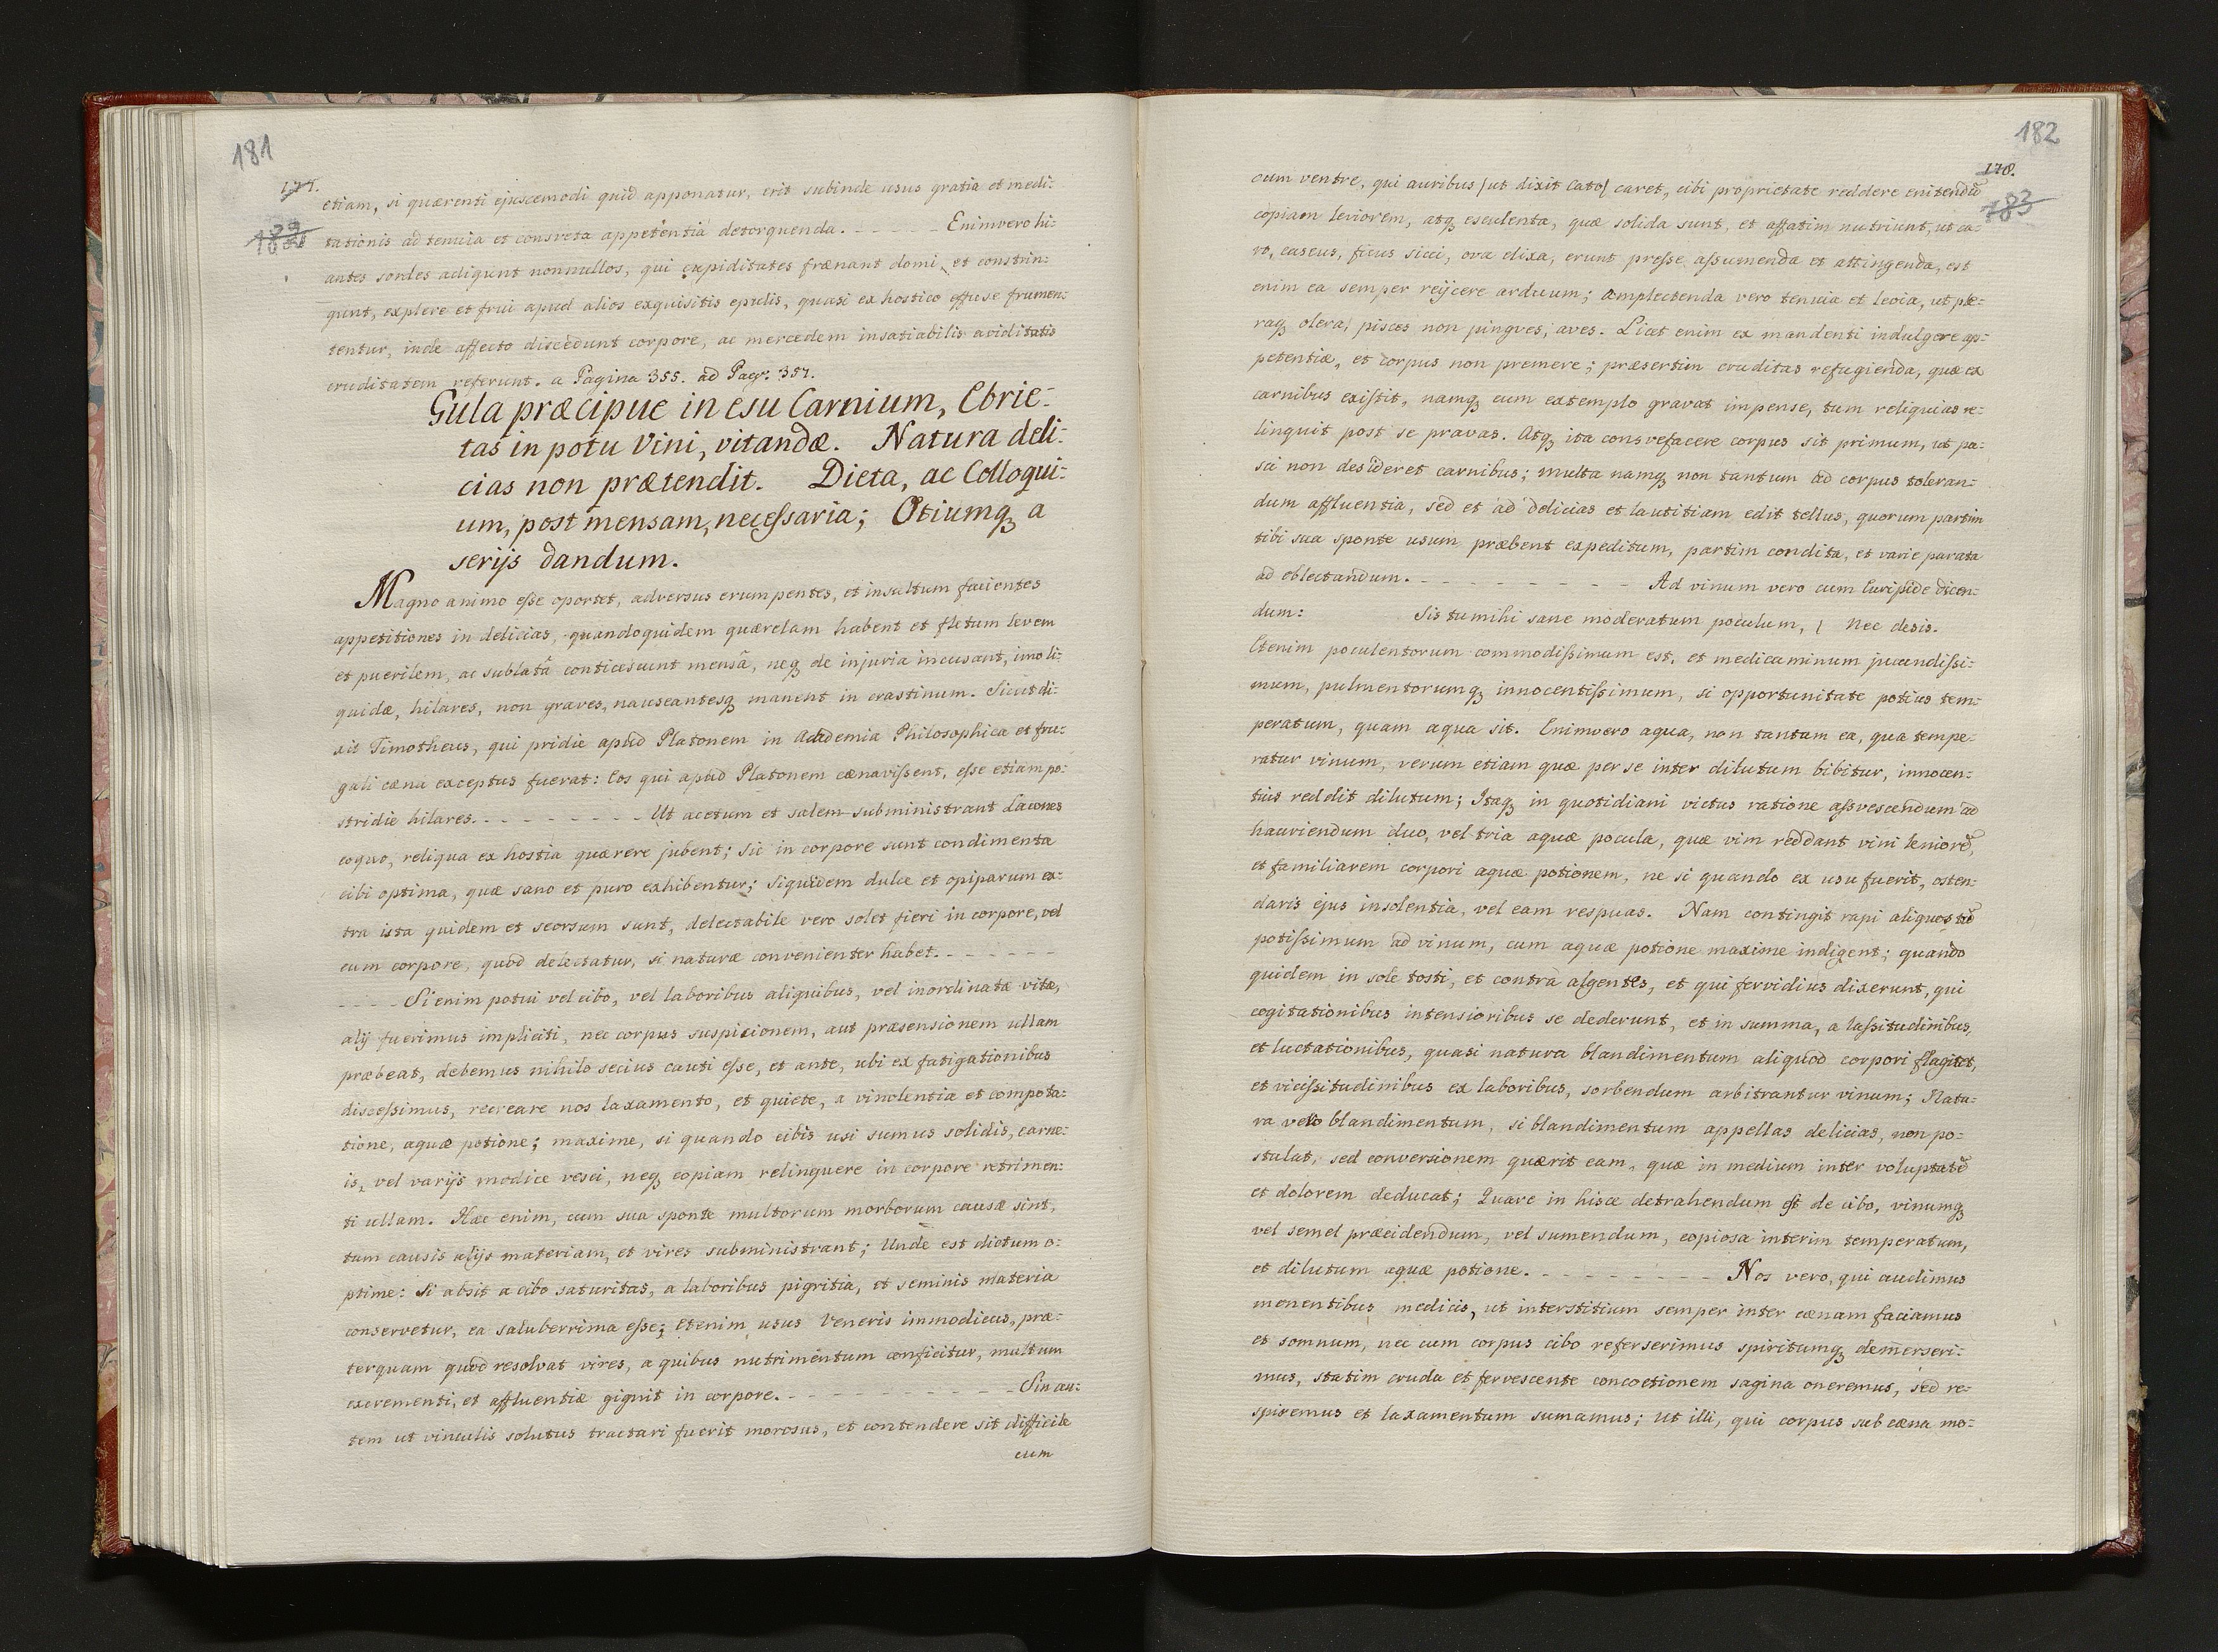 181
177.
182
etiam, si quærenti ejuscemodi quid apponatur, erit subinde usus gratia et medi:
tationis ad tenuia et consveta appetentia detorquenda. - - - - - Enimvero hi:
antes sordes adigunt nonnullos, qui cupiditates frænant domi, et constrin:
gunt, explere et frui apud alios exquisitis epulis, quasi ex hostico effuse frumen:
tentur, inde affecto discedunt corpore, ac mercedem insatiabilis aviditatis
cruditatem referunt. a Pagina 355. ad Pag. 357.
Gula præcipue in esu Carnium, Ebrie-
tas in potu Vini, vitandæ. Natura deli:
cias non prætendit. Dieta, ac Colloqui:
um, post mensam, necessaria; Otiumq a
serijs dandum.
Magno animo esse oportet, adversus erumpentes, et insultum facientes
appetitiones in delicias, quandoquidem quærelam habent et fletum levem
et puerilem, ac sublatâ conticescunt mensâ, neq de injuria incusant, imo li:
quidæ, hilares, non graves, nauseantesq manent in crastinum. Sicut di:
xit Timotheus, qui pridie apud Platonem in Academia Philosophica et fru:
gali cæna exceptus fuerat: Eos qui apud Platonem cænavissent, esse etiam po:
stridie hilares. - - - - - - - - Ut acetum et salem subministrant Lacones
coquo, reliqua ex hostia quærere jubent; sic in corpore sunt condimenta
cibi optima, quæ sano et puro exhibentur; siquidem dulce et opiparum ex:
tra ista quidem et seorsum sunt, delectabile vero solet fieri in corpore, vel
cum corpore, quod delectatur, si naturæ convenienter habet. - - - - - -
- - - - Si enim potui vel cibo, vel laboribus aliquibus, vel inordinatæ vitæ,
alij fuerimus impliciti, nec corpus suspicionem, aut præsensionem ullam
præbeat, debemus nihilo secius cauti esse, et ante, ubi ex fatigationibus
discessimus, recreare nos laxamento, et quiete, a vinolentia et compota:
tione, aquæ potione; maxime, si quando cibis usi sumus solidis, carne:
is, vel varijs modice vesci, neq copiam relinquere in corpore retrimen:
ti ullam. Hæc enim, cum sua sponte multorum morborum causæ sint,
tum causis alijs materiam, et vires subministrant; Unde est dictum o:
ptime: Si absit a cibo saturitas, a laboribus pigritia, et seminis materia
conservetur, ea saluberrima esse; etenim usus Veneris immodicus, præ:
terquam quod resolvat vires, a quibus nutrimentum conficitur, multum
excrementi, et affluentiæ gignit in corpore. - - - - - - - - - - - Sin au:
tem ut vinculis solutus tractari fuerit morosus, et contendere sit difficile
cum
182
178.
183
cum ventre, qui auribus /ut dixit Cato/ caret, cibi proprietate reddere enitendũ
copiam leviorem, atq esculenta, quæ solida sunt, et affatim nutriunt, ut ca:
ro, caseus, ficus sicci, ova elixa, erunt presse assumenda et attingenda, est
enim ea semper reijcere arduum; amplectenda vero tenuia et levia, ut ple:
raq olera, pisces non pingves, aves. Licet enim ex mandenti indulgere ap:
petentiæ, et corpus non premere; præsertim cruditas refugienda, quæ ex
carnibus existit, namq cum extemplo gravat impense, tum reliquias re:
linquit post se pravas. Atq ita consvefacere corpus sit primum, ut pa:
sci non desideret carnibus; multa namq non tantum ad corpus toleran:
dum affluentia, sed et ad delicias et lautitiam edit tellus, quorum partim
tibi sua sponte usum præbent expeditum, partim condita, et varie parata
ad oblectandum. - - - - - - - - - - Ad vinum vero cum Euripide dicen:
dum: Sis tu mihi sane moderatum poculum, / Nec desis.
Etenim poculentorum commodissimum est, et medicaminum jucundissi:
mum, pulmentorumq innocentissimum, si opportunitate potius tem:
peratum, quam aqua sit. Enimvero aqua, non tantum ea, qua tempe:
ratur vinum, verum etiam quæ per se inter dilutum bibitur, innocen:
tius reddit dilutum; Itaq in quotidiani victus ratione assvescendum ad
hauriendum duo, vel tria aquæ pocula, quæ vim reddant vini leniorẽ,
et familiarem corpori aquæ potionem, ne si quando ex usu fuerit, osten:
daris ejus insolentia, vel eam respuas. Nam contingit rapi aliquos tũ
potissimum ad vinum, cum aquæ potione maxime indigent; quando
quidem in sole tosti, et contra algentes, et qui fervidius dixerunt, qui
cogitationibus intensioribus se dederunt, et in summa, a lassitudinibus,
et luctationibus, quasi natura blandimentum aliquod corpori flagitet,
et vicissitudinibus ex laboribus, sorbendum arbitrantur vinum; Natu:
ra vero blandimentum, si blandimentum appellas delicias, non po:
stulat, sed conversionem quærit eam, quæ in medium inter voluptatẽ
et dolorem deducat; Quare in hisce detrahendum est de cibo, vinumq
vel semel præcidendum, vel sumendum, copiosa interim temperatum,
et dilutum aquæ potione. - - - - - - - - - Nos vero, qui audimus
monentibus medicis, ut interstitium semper inter cænam faciamus
et somnum, nec cum corpus cibo referserimus spiritumq demerseri:
mus, statim cruda et fervescente concoctionem sagina oneremus, sed re:
spiremus et laxamentum sumamus; ut illi, qui corpus sub cæna mo: